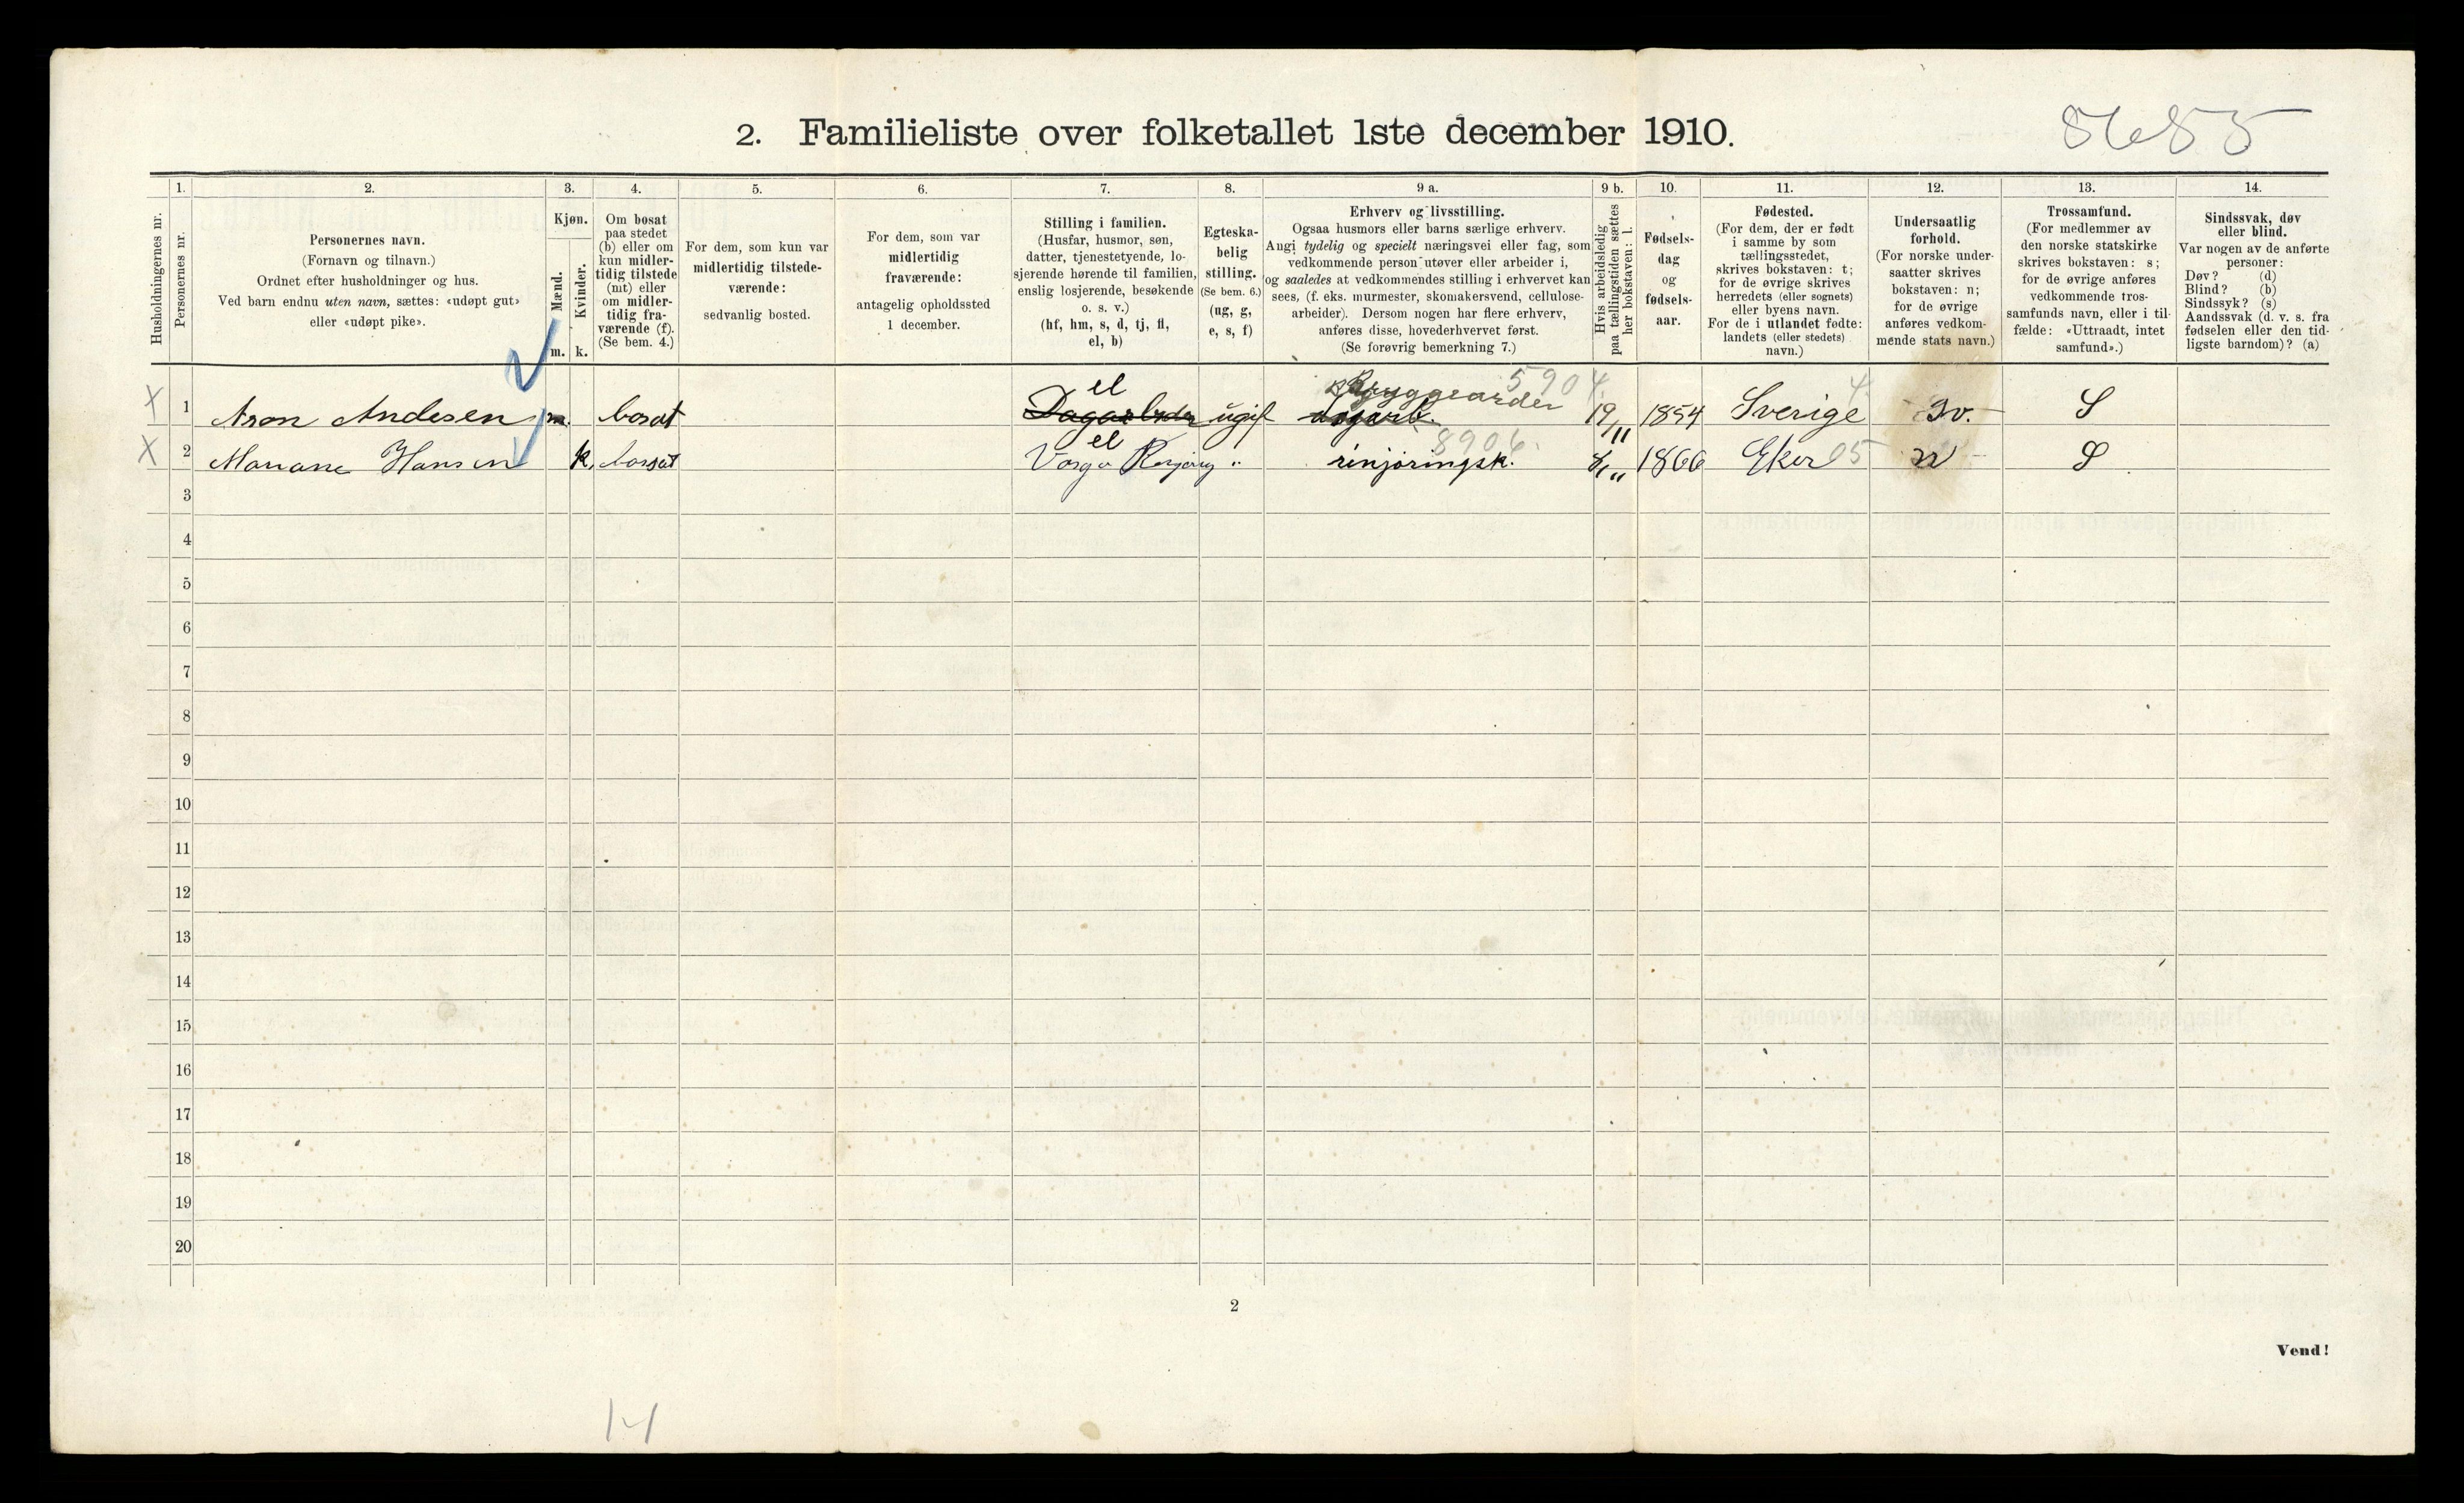 2. Familieliste over folketallet 1ste december 1910.
8685
Husholdningernes nr.
1.
Personernes nr.
2.
Personernes navn.
(Fornavn og tilnavn.)
Ordnet efter husholdninger og hus.
Ved barn endnu uten navn, sættes: «udøpt gut»
eller «udøpt pike».
3.
Kjøn.
Mænd.
Kvinder.
m. k.
4.
Om bosat
paa stedet
(b) eller om
kun midler-
tidig tilstede
(mt) eller
om midler-
tidig fra-
værende (f).
(Se bem. 4.)
5.
For dem, som kun var
midlertidig tilstede-
værende:
sedvanlig bosted.
6.
For dem, som var
midlertidig
fraværende:
antagelig opholdssted
1 december.
7.
Stilling i familien.
(Husfar, husmor, søn,
datter, tjenestetyende, lo-
sjerende hørende til familien,
enslig losjerende, besøkende
o. s. v.)
(hf, hm, s, d, tj, fl,
el, b)
8.
Egteska-
belig
stilling.
(Se bem. 6.)
(ug, g,
e, s, f)
9 a.
Erhverv og livsstilling.
Ogsaa husmors eller barns særlige erhverv.
Angi tydelig og specielt næringsvei eller fag, som
vedkommende person utøver eller arbeider i,
og saaledes at vedkommendes stilling i erhvervet kan
sees, (f. eks. murmester, skomakersvend, cellulose-
arbeider). Dersom nogen har flere erhverv,
anføres disse, hovederhvervet først.
(Se forøvrig bemerkning 7.)
9 b.
Hvis arbeidsledig
paa tællingstiden sættes
her bokstaven: l.
10.
Fødsels-
dag
og
fødsels-
aar.
11.
Fødested.
(For dem, der er født
i samme by som
tællingsstedet,
skrives bokstaven: t;
for de øvrige skrives
herredets (eller sognets)
eller byens navn.
For de i utlandet fødte:
landets (eller stedets)
navn.)
12.
Undersaatlig
forhold.
(For norske under-
saatter skrives
bokstaven: n;
for de øvrige
anføres vedkom-
mende stats navn.)
13.
Trossamfund.
(For medlemmer av
den norske statskirke
skrives bokstaven: s;
for de øvrige anføres
vedkommende tros-
samfunds navn, eller i til-
fælde: «Uttraadt, intet
samfund».)
14.
Sindssvak, døv
eller blind.
Var nogen av de anførte
personer:
Døv? (d)
Blind? (b)
Sindssyk? (s)
Aandssvak (d. v. s. fra
fødselen eller den tid-
ligste barndom)? (a)
el Bryggearbder 5904. 4
X 1 Aron Andesen m. bosat Dagarbeder ugift dagarb. 19/11 1854 Sverige Sv. S
el 8906.
X 2 Mariane Hansen k. bosat " rinjøringsk. 8/11 1866 Eker 05 n S
3
4
5
6
7
8
9
10
11
12
13
14
15
16
17
18
19
20
2
Vend!
14